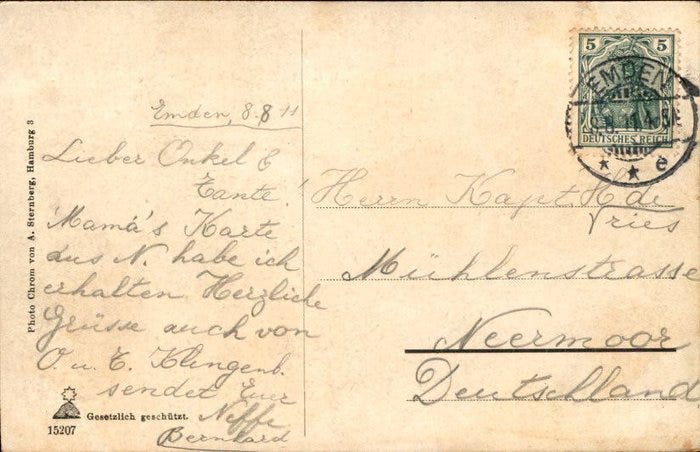 Photo Chrom von A. Sternberg, Hamburg 3
Emden, 8.8 11
Lieber Onkel &
Tante!
Mama's Karte
aus N. habe ich
erhalten Herzliche
Grüsse auch von
O. u. E. Klingenb.
sendet Euer
Neffe
Bernhard
Gesetzlich geschützt.
15207
5 5
DEUTSCHES REICH
EMDEN
* * e
Herrn Kapt. H. de
Vries
Mühlenstrasse
Neermoor
Deutschland